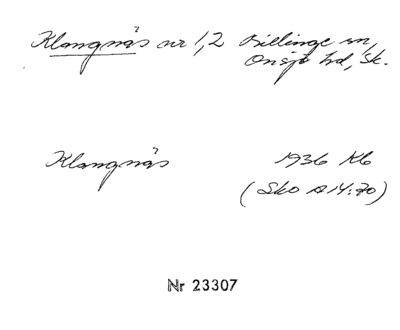 Klangnäs nr 1, 2 Billinge sn,
Onsjö hd, Sk.
Klangnäs 1936 Kb
(Sko A 14:70)
Nr 23307